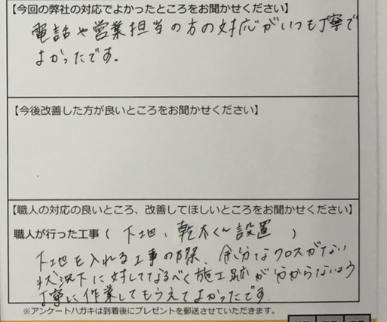 【今回の弊社の対応でよかったところをお聞かせください】
電話や営業担当の方の対応がいつも丁寧で
よかったです。
【今後改善した方が良いところをお聞かせください】
【職人の対応の良いところ、改善してほしいところをお聞かせください】
職人が行った工事（下地、乾太くん設置）
下地を入れる工事の際、余分なクロスがない
状況下に対してなるべく施工跡が分からないよう
丁寧に作業してもらえてよかったです。
※アンケートハガキは到着後にプレゼントを郵送させていただきます。